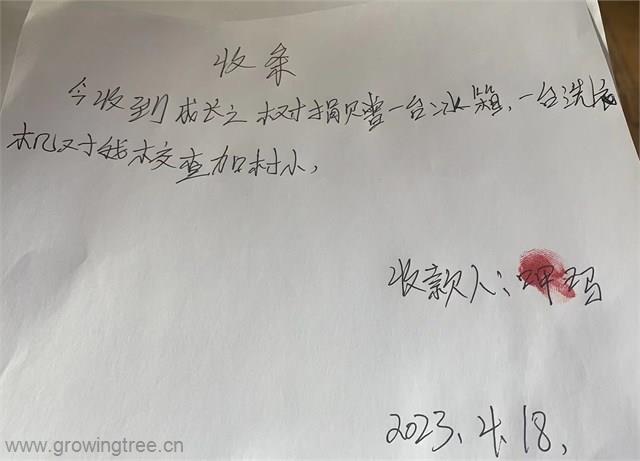 收条
今收到成长之树捐赠一台冰箱，一台洗衣
机对我校查加村小，
收款人：呷玛
2023.4.18，
www.growingtree.cn